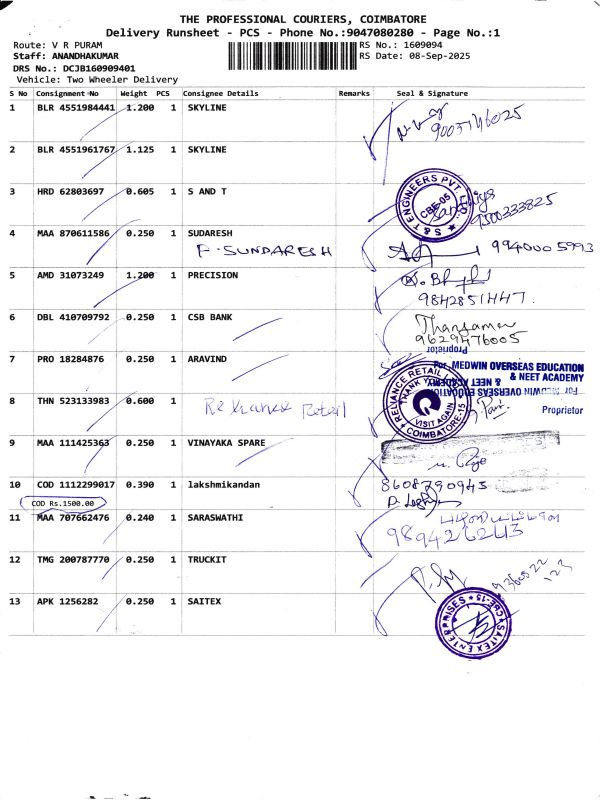 THE PROFESSIONAL COURIERS, COIMBATORE
Delivery Runsheet - PCS - Phone No.:9047080280 - Page No.:1
Route: V R PURAM
RS No.: 1609094
Staff: ANANDHAKUMAR
RS Date: 08-Sep-2025
DRS No.: DCJB160909401
Vehicle: Two Wheeler Delivery
S No Consignment No Weight PCS Consignee Details Remarks Seal & Signature
1 BLR 4551984441 1.200 1 SKYLINE
2 BLR 4551961767 1.125 1 SKYLINE
3 HRD 62803697 0.605 1 S AND T
S & T ENGINEERS PVT. LTD. CBE-05
9500333825
4 MAA 870611586 0.250 1 SUDARESH
F. SUNDARESH
9940005993
5 AMD 31073249 1.200 1 PRECISION
9842851447.
6 DBL 410709792 0.250 1 CSB BANK
9629476005
Proprietor
7 PRO 18284876 0.250 1 ARAVIND
For MEDWIN OVERSEAS EDUCATION
& NEET ACADEMY
For MEDWIN OVERSEAS EDUCATION
& NEET ACADEMY
Proprietor
8 THN 523133983 0.600 1 Reliance Retail
RELIANCE RETAIL THANK YOU VISIT AGAIN COIMBATORE-15
9 MAA 111425363 0.250 1 VINAYAKA SPARE
10 COD 1112299017 0.390 1 lakshmikandan
8608790943
COD Rs.1500.00
11 MAA 707662476 0.240 1 SARASWATHI
12 TMG 200787770 0.250 1 TRUCKIT
13 APK 1256282 0.250 1 SAITEX
SAITEX ENTERPRISES CBE-15